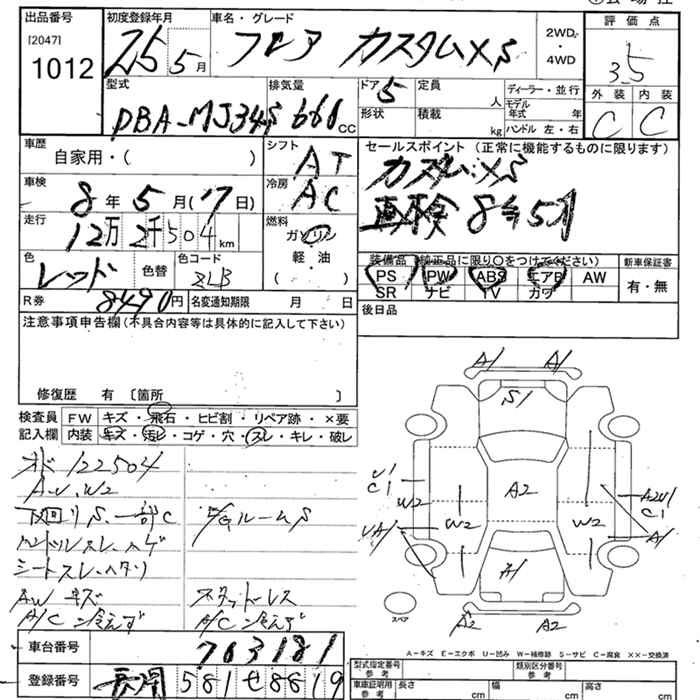 出品番号
[2047]
1012
初度登録年月
25 5月
車名・グレード
フレア カスタムXS
2WD
・
4WD
評価点
3.5
外装 内装
C C
型式
DBA-MJ34S
排気量
660cc
ドア 5
形状
定員 人
積載 kg
ディーラー・並行
モデル年式 年
ハンドル 左・右
車歴
自家用・( )
シフト
AT
車検
8年5月(17日)
冷房
AC
走行
12万2千504km
燃料
ガソリン
軽・油
( )
色
レッド
色替
色コード
ZLB
R券 8490円
名変通知期限 月 日
セールスポイント (正常に機能するものに限ります)
カスタムXS
車検8年5月
装備品 (純正品に限り○をつけてください)
PS PW ABS エアB AW
SR ナビ TV カワ
新車保証書
有・無
後日品
注意事項申告欄(不具合内容等は具体的に記入して下さい)
修復歴 有 〔箇所 〕
検査員記入欄
FW キズ・飛石・ヒビ割・リペア跡・×要
内装 キズ・汚レ・コゲ・穴・スレ・キレ・破レ
オド122504
A.U.W2
下回りS.一部C
ハンドルスレ.ハゲ
シートスレ.ヘタリ
AWキズ
A/C冷えず
E/GルームS
スタッドレス
A/C冷えず
A1 A1
S1
U1
C1
W2
A2
W2
W2
A2U1
C1
UA1
A1
A1
A2 A2
スペア
A-キズ E-エクボ U-凹み W-補修跡 S-サビ C-腐食 XX-交換済
車台番号
703181
登録番号
長岡 581 せ 8819
型式指定番号
参考
類別区分番号
参考
車庫証明用
参考
長さ cm
幅 cm
高さ cm